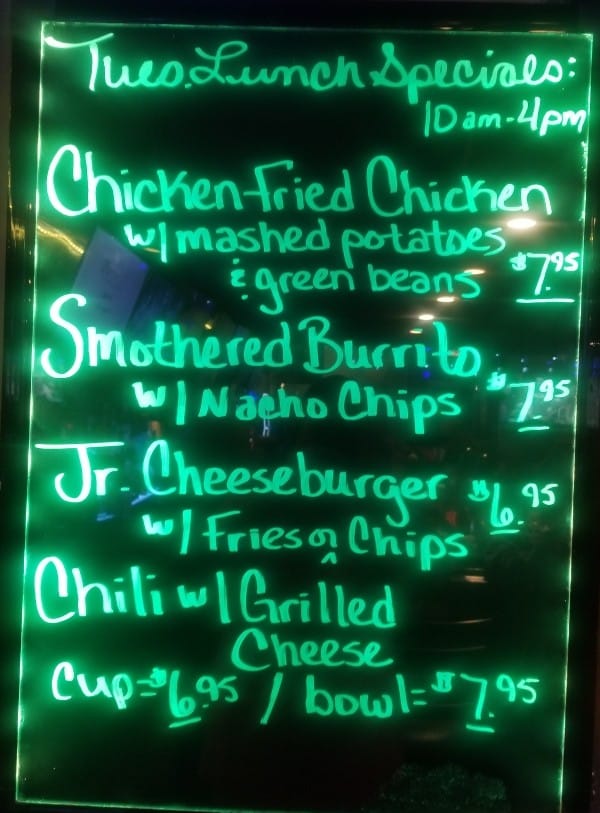 Tues. Lunch Specials:
10am-4pm
Chicken-Fried Chicken
w/ mashed potatoes
& green beans $7.95
Smothered Burrito
w/ Nacho Chips $7.95
Jr. Cheeseburger $6.95
w/ Fries or Chips
Chili w/ Grilled
Cheese
Cup=$6.95 / bowl=$7.95